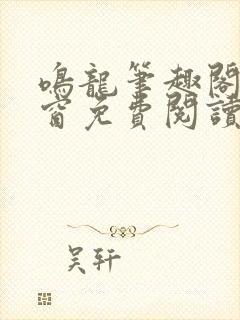 鳴龍筆趣閣
窗免費閱讀
吴轩